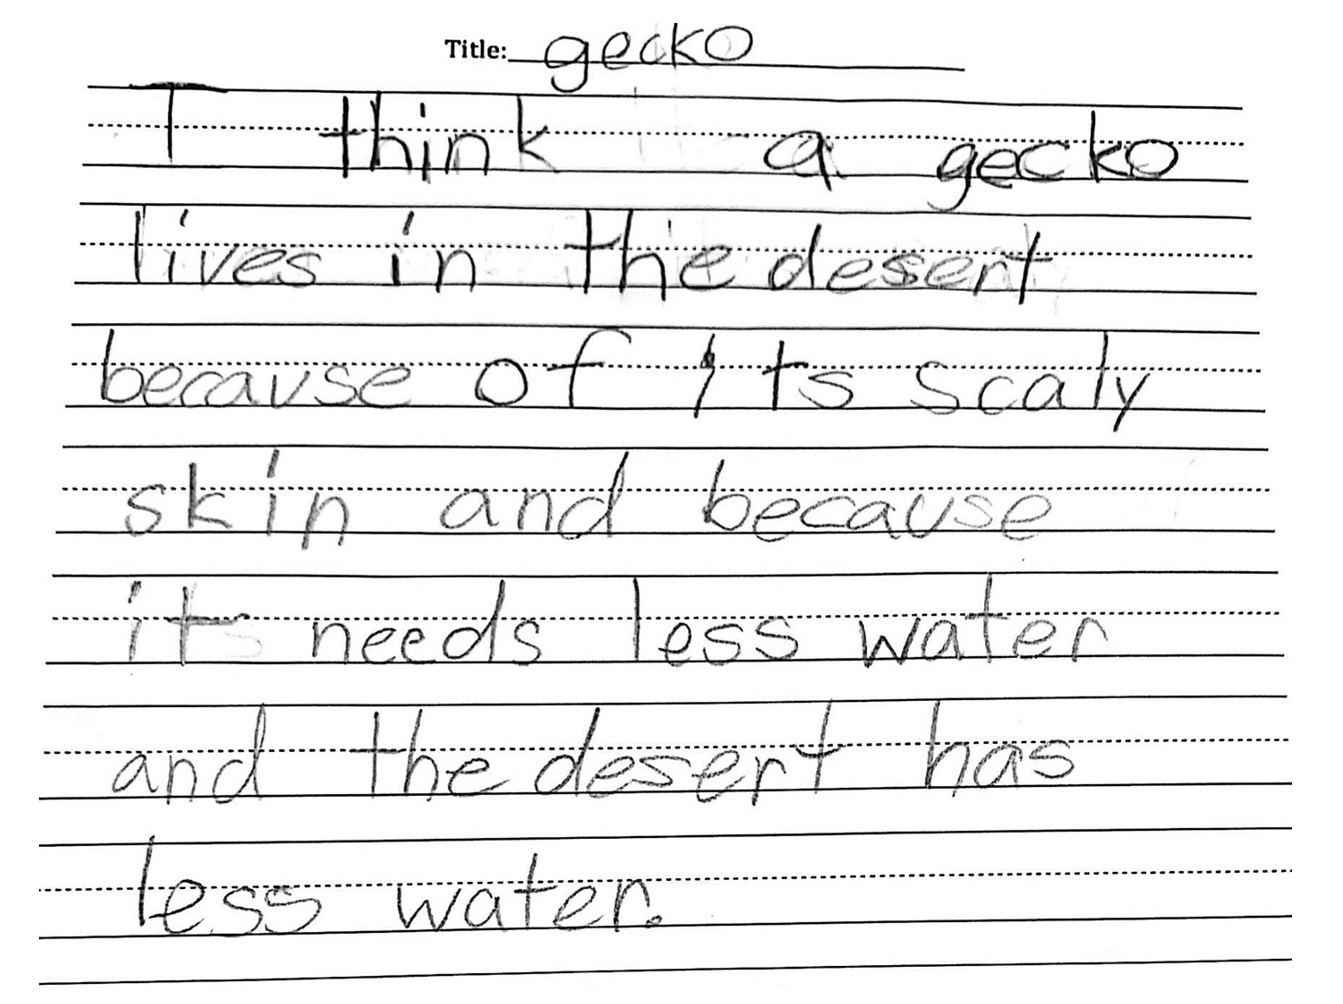 Title: gecko
I think a gecko
lives in the desert
because of its scaly
skin and because
it needs less water
and the desert has
less water.